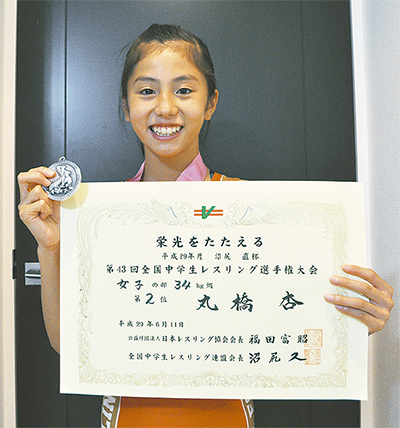 栄光をたたえる
平成29年度 沼尻 直杯
第43回全国中学生レスリング選手権大会
女子の部 34kg級
第2位 丸橋 杏
平成29年6月11日
公益財団法人日本レスリング協会会長 福田富昭
全国中学生レスリング連盟会長 沼尻久